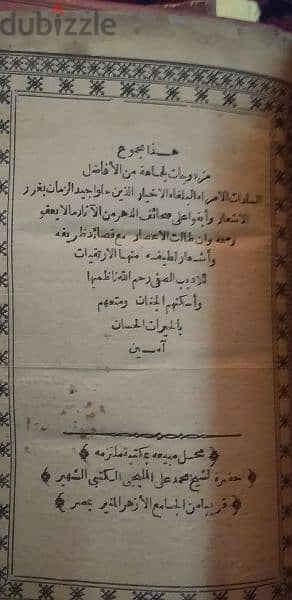 dubizzle
هذا مجموع
مزدوجات لجماعة من الأفاضل
السادات الأمراء البلغاء الاخيار الذين حلوا جيد الزمان بغرر
الاشعار وأبقوا على صحائف الدهر من الآثار مالا يعفو
رسمه وان طالت الاعصار مع قصائد ظريفه
وأشعار لطيفه منها الارتقيات
للاديب الصفى رحم الله ناظمها
وأسكنهم الجنان ومتعهم
بالخيرات الحسان
آمين
محل مبيعه بمكتبة ملتزمه
حضرة الشيخ محمد على المليجى الكتبى الشهير
قريبا من الجامع الأزهر المنير بمصر